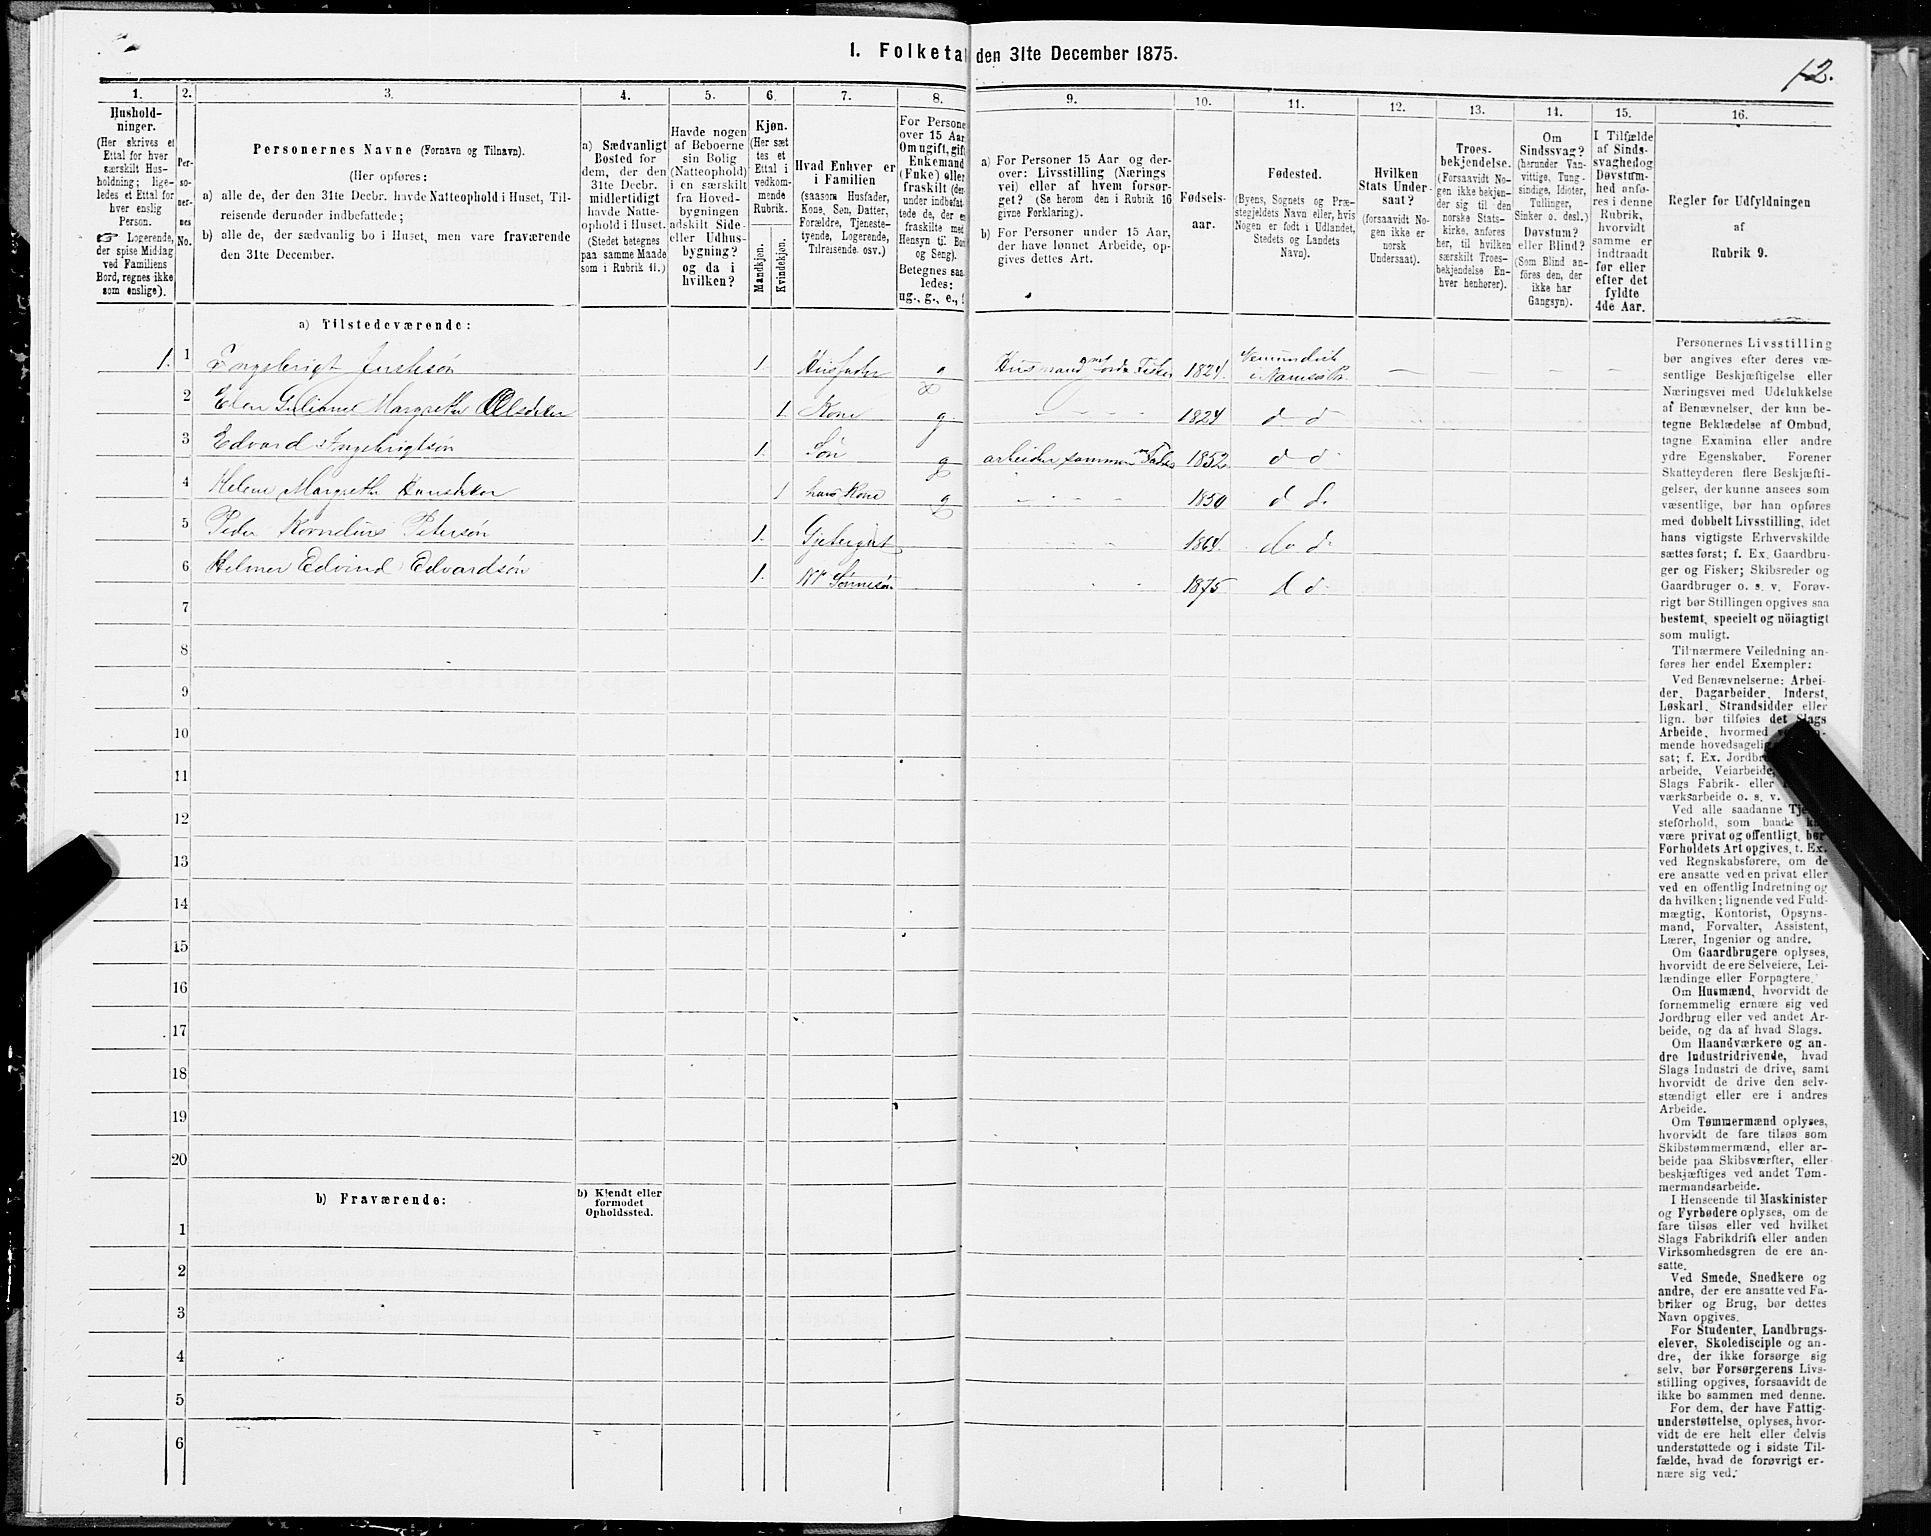 1. Folketal den 31te December 1875.
12.
1.
Hushold-
ninger.
(Her skrives et
Ettal for hver
særskilt Hus-
holdning; lige-
ledes et Ettal for
hver enslig
Person.
☞ Logerende,
der spise Middag
ved Familiens
Bord, regnes ikke
som enslige).
2.
Per-
so-
ner-
nes
No.
3.
Personernes Navne (Fornavn og Tilnavn).
(Her opføres:
a) alle de, der den 31te Decbr. havde Natteophold i Huset, Til-
reisende derunder indbefattede;
b) alle de, der sædvanlig bo i Huset, men vare fraværende
den 31te December.
4.
a) Sædvanligt
Bosted for
dem, der den
31te Decbr.
midlertidigt
havde Natte-
ophold i Huset.
(Stedet betegnes
paa samme Maade
som i Rubrik 11.)
5.
Havde nogen
af Beboerne
sin Bolig
(Natteophold)
i en særskilt
fra Hoved-
bygningen
adskilt Side-
eller Udhus-
bygning?
og da i
hvilken?
6.
Kjøn.
(Her sæt
tes et
Ettal i
vedkom-
mende
Rubrik.
Mandkjøn.
Kvindekjøn.
7.
Hvad Enhver er
i Familien
(saasom Husfader,
Kone, Søn, Datter,
Forældre, Tjeneste-
tyende, Logerende,
Tilreisende osv.)
8.
For Persone
over 15 Aar
Om ugift, gift
Enkemand
(Enke) eller
fraskilt (der-
under indbefat-
tede de, der er
fraskilte med
Hensyn til Bor
og Seng).
Betegnes saa
ledes:
ug., g., e.,
9.
a) For Personer 15 Aar og der-
over: Livsstilling (Nærings
vei) eller af hvem forsør-
get? (Se herom den i Rubrik 16
givne Forklaring).
b) For Personer under 15 Aar,
der have lønnet Arbeide, op-
gives dettes Art.
10.
Fødsels-
aar.
11.
Fødested.
(Byens, Sognets og Præ-
stegjeldets Navn eller, hvis
Nogen er født i Udlandet,
Stedets og Landets
Navn).
12.
Hvilken
Stats Under-
saat?
(forsaavidt No-
gen ikke er
norsk
Undersaat).
13.
Troes-
bekjendelse.
(Forsaavidt No-
gen ikke bekjen-
der sig til den
norske Stats-
kirke, anføres
her, til hvilken
særskilt Troes-
bekjendelse En-
hver henhører).
14.
Om
Sindssvag?
(herunder Van-
vittige, Tung-
sindige, Idioter,
Tullinger,
Sinker o. desl.)
Døvstum?
eller Blind?
(Som Blind an-
føres den, der
ikke har
Gangsyn).
15.
I Tilfælde
af Sinds-
svaghed og
Døvstum-
hed anfø-
res i denne
Rubrik,
hvorvidt
samme er
indtraadt
før eller
efter det
fyldte
4de Aar.
16.
Regler for Udfyldningen
af
Rubrik 9.
a) Tilstedeværende:
1. 1 Engebrigt 1. Husfader g Husmand Fisker 1824. — — — —
2 Elen Juliane Margrethe Olsdatter 1. Kone g 1824 d d
3 Edvard Ingebrigtsøn 1. Søn g arbeider sammen Fader 1852 d d
4 Helene Margrethe Hansdatter 1 hans Kone g 1850 d d.
5 Peder Kornelius Petersøn 1. Gjetergut 1864. do d
6 Helmer Edvind Edvardsøn 1. Sønnesøn 1875 d d
7
8
9
10
11
12
13
14
15
16
17
18
19
20
b) Fraværende:
b) Kjendt eller
formodet
Opholdssted.
1
2
3
4
5
6
Personernes Livsstilling
bør angives efter deres væ-
sentlige Beskjæftigelse eller
Næringsvei med Udelukkelse
af Benævnelser, der kun be-
tegne Beklædelse af Ombud,
tagne Examina eller andre
ydre Egenskaber. Forener
Skatteyderen flere Beskjæfti-
gelser, der kunne ansees som
væsentlige, bør han opføres
med dobbelt Livsstilling, idet
hans vigtigste Erhvervskilde
sættes først; f. Ex. Gaardbru-
ger og Fisker; Skibsreder og
Gaardbruger o. s. v. Forøv-
rigt bør Stillingen opgives saa
bestemt, specielt og nöiagtigt
som muligt.
Til nærmere Veiledning an-
føres her endel Exempler:
Ved Benævnelserne: Arbei-
der, Dagarbeider, Inderst,
Løskarl, Strandsidder eller
lign. bør tilføies det Slags
Arbeide, hvormed
mende hovedsagelig
sat; f. Ex. Jordbr
arbeide, Veiarbeide,
Slags Fabrik- eller
værksarbeide o. s. v.
Ved alle saadanne Tje
steforhold, som baade
være privat og offentligt, bør
Forholdets Art opgives, t. Ex.
ved Regnskabsførere, om de
ere ansatte ved en privat eller
ved en offentlig Indretning og
da hvilken; lignende ved Fuld-
mægtig, Kontorist, Opsyns-
mand, Forvalter, Assistent,
Lærer, Ingeniør og andre.
Om Gaardbrugere oplyses,
hvorvidt de ere Selveiere, Lei-
lændinge eller Forpagtere.
Om Husmænd, hvorvidt de
fornemmelig ernære sig ved
Jordbrug eller ved andet Ar-
beide, og da af hvad Slags.
Om Haandværkere og an-
dre Industridrivende, hvad
Slags Industri de drive, samt
hvorvidt de drive den selv-
stændigt eller ere i andres
Arbeide.
Om Tømmermænd oplyses,
hvorvidt de fare tilsøs som
Skibstømmermænd, eller ar-
beide paa Skibsværfter, eller
beskjæftiges ved andet Tøm-
mermandsarbeide.
I Henseende til Maskinister
og Fyrbødere oplyses, om de
fare tilsøs eller ved hvilket
Slags Fabrikdrift eller anden
Virksomhedsgren de ere an-
satte.
Ved Smede, Snedkere og
andre, der ere ansatte ved Fa-
briker og Brug, bør dettes
Navn opgives.
For Studenter, Landbrugs-
elever, Skoledisciple og an-
dre, der ikke forsørge sig
selv, bør Forsørgerens Livs-
stilling opgives, forsaavidt de
ikke bo sammen med denne.
For dem, der have Fattig-
understøttelse, oplyses, hvor-
vidt de ere helt eller delvis
understøttede og i sidste Til-
fælde, hvad de forøvrigt er-
nære sig ved.